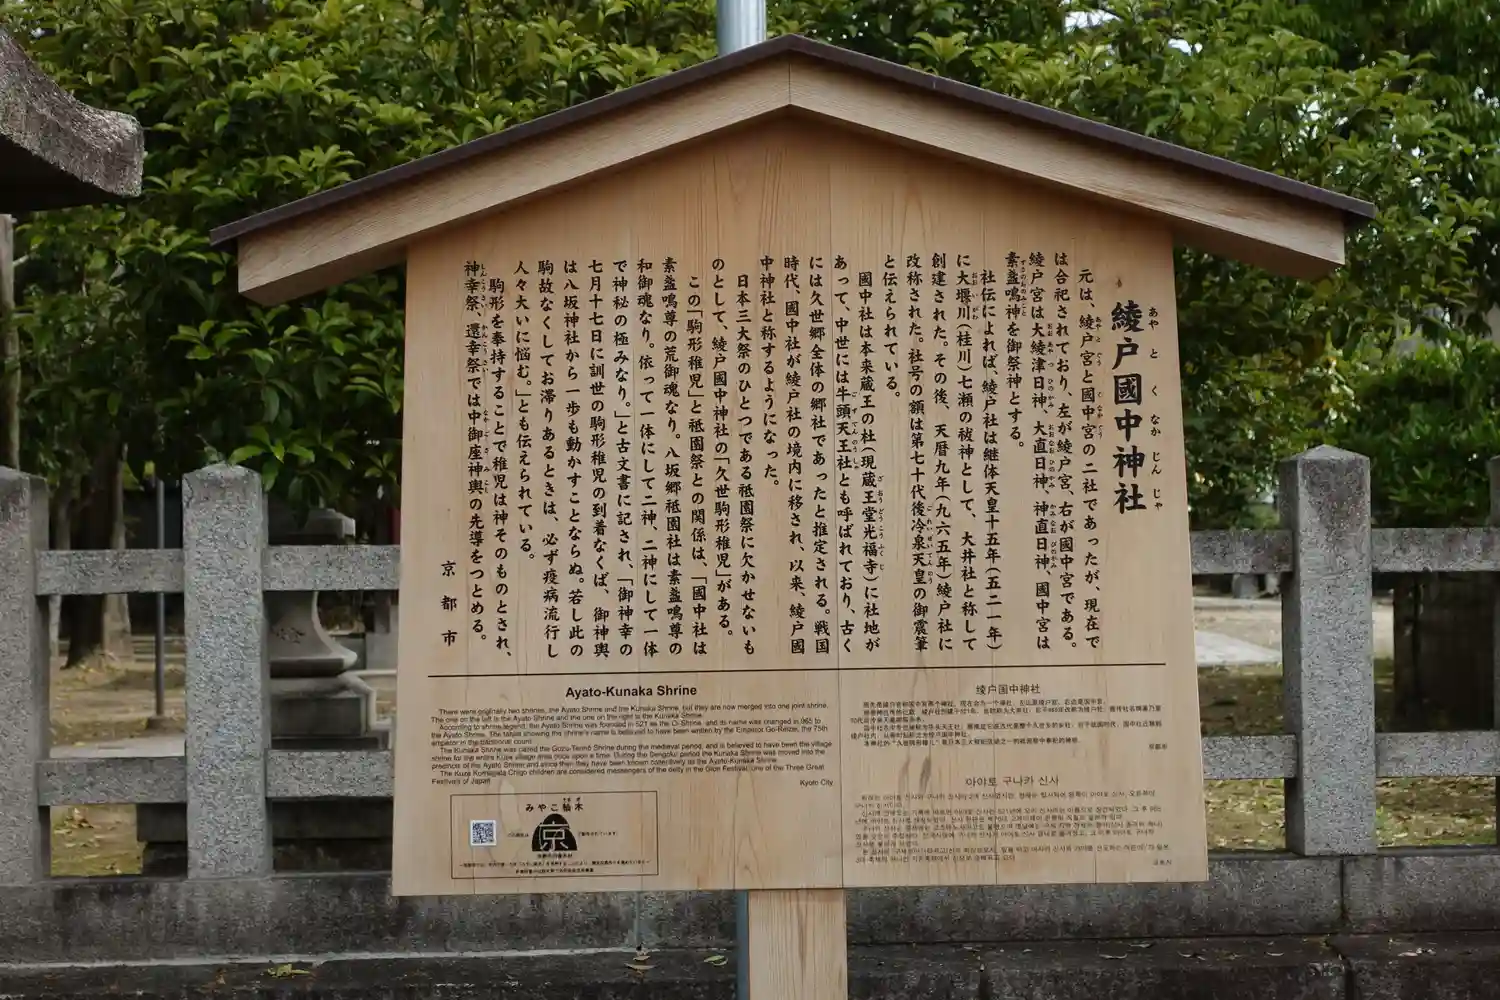 綾戸國中神社
あやとくなかじんじゃ
元は、綾戸宮と國中宮の二社であったが、現在で
は合祀されており、左が綾戸宮、右が國中宮である。
綾戸宮は大綾津日神、大直日神、神直日神、國中宮は
素盞嗚神を御祭神とする。
社伝によれば、綾戸社は継体天皇十五年(五二一年)
に大堰川(桂川)七瀬の祓神として、大井社と称して
創建された。その後、天暦九年(九六五年)綾戸社に
改称された。社号の額は第七十代後冷泉天皇の御震筆
と伝えられている。
國中社は本来蔵王の杜(現蔵王堂光福寺)に社地が
あって、中世には牛頭天王社とも呼ばれており、古く
には久世郷全体の郷社であったと推定される。戦国
時代、國中社が綾戸社の境内に移され、以来、綾戸國
中神社と称するようになった。
日本三大祭のひとつである祗園祭に欠かせないも
のとして、綾戸國中神社の「久世駒形稚児」がある。
この「駒形稚児」と祗園祭との関係は、「國中社は
素盞嗚尊の荒御魂なり。八坂郷祗園社は素盞嗚尊の
和御魂なり。依って一体にして二神、二神にして一体
で神秘の極みなり。」と古文書に記され、「御神幸の
七月十七日に訓世の駒形稚児の到着なくば、御神輿
は八坂神社から一歩も動かすことならぬ。若し此の
駒故なくしてお滞りあるときは、必ず疫病流行し
人々大いに悩む。」とも伝えられている。
駒形を奉持することで稚児は神そのものとされ、
神幸祭、還幸祭では中御座神輿の先導をつとめる。
京都市
Ayato-Kunaka Shrine
There were originally two shrines, the Ayato Shrine and the Kunaka Shrine, but they are now merged into one joint shrine.
The one on the left is the Ayato Shrine and the one on the right is the Kunaka Shrine.
According to shrine legend, the Ayato Shrine was founded in 521 as the Oi-Shrine, and its name was changed in 965 to
the Ayato Shrine. The tablet showing the shrine's name is believed to have been written by the Emperor Go-Reizei, the 70th
emperor in the traditional count.
The Kunaka Shrine was called the Gozu-Tenno Shrine during the medieval period, and is believed to have been the village
shrine for the entire Kuze village area once upon a time. During the Sengoku period the Kunaka Shrine was moved into the
precincts of the Ayato Shrine and since then they have been known collectively as the Ayato-Kunaka Shrine.
The Kuze Komagata Chigo children are considered messengers of the deity in the Gion Festival, one of the Three Great
Festivals of Japan.
Kyoto City
绫户国中神社
아야토 구나카 신사
みやこ杣木
京